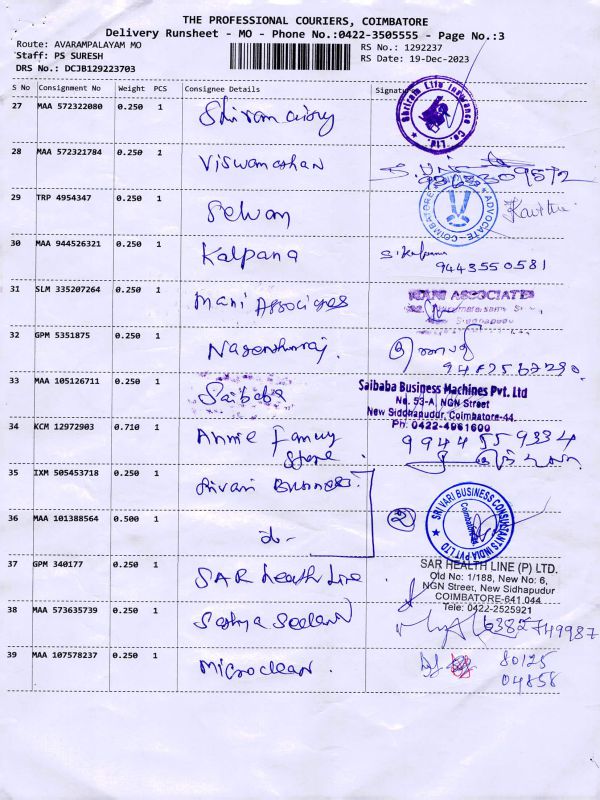 THE PROFESSIONAL COURIERS, COIMBATORE
Delivery Runsheet - MO - Phone No.:0422-3505555 - Page No.:3
Route: AVARAMPALAYAM MO
Staff: PS SURESH
DRS No.: DCJB129223703
RS No.: 1292237
RS Date: 19-Dec-2023
S No Consignment No Weight PCS Consignee Details Signature
27 MAA 572322080 0.250 1
Shriram Life Insurance Co. Ltd.
28 MAA 572321784 0.250 1 Viswanathan
29 TRP 4954347 0.250 1 Selvan
COIMBATORE ADVOCATE
30 MAA 944526321 0.250 1 Kalpana S. Kalpana
9443550581
31 SLM 335207264 0.250 1 Mani Associates MANI ASSOCIATES
Siddhapudur
32 GPM 5351875 0.250 1
33 MAA 105126711 0.250 1 Saibaba Saibaba Business Machines Pvt. Ltd
No. 53-A, NGN Street
New Siddhapudur, Coimbatore-44.
Ph: 0422-4961600
34 KCM 12972903 0.710 1 Annie Fancy
Store
9944559334
35 IXM 505453718 0.250 1 Srivari Business
SRI VARI BUSINESS CONSULTANTS INDIA PVT LTD
Coimbatore
36 MAA 101388564 0.500 1 do- 2
37 GPM 340177 0.250 1 SAR health Line SAR HEALTH LINE (P) LTD.
Old No: 1/188, New No: 6,
NGN Street, New Sidhapudur
COIMBATORE-641 044
Tele: 0422-2525921
38 MAA 573635739 0.250 1 Sathya 6382749987
39 MAA 107578237 0.250 1 Microclean. 80125
04858